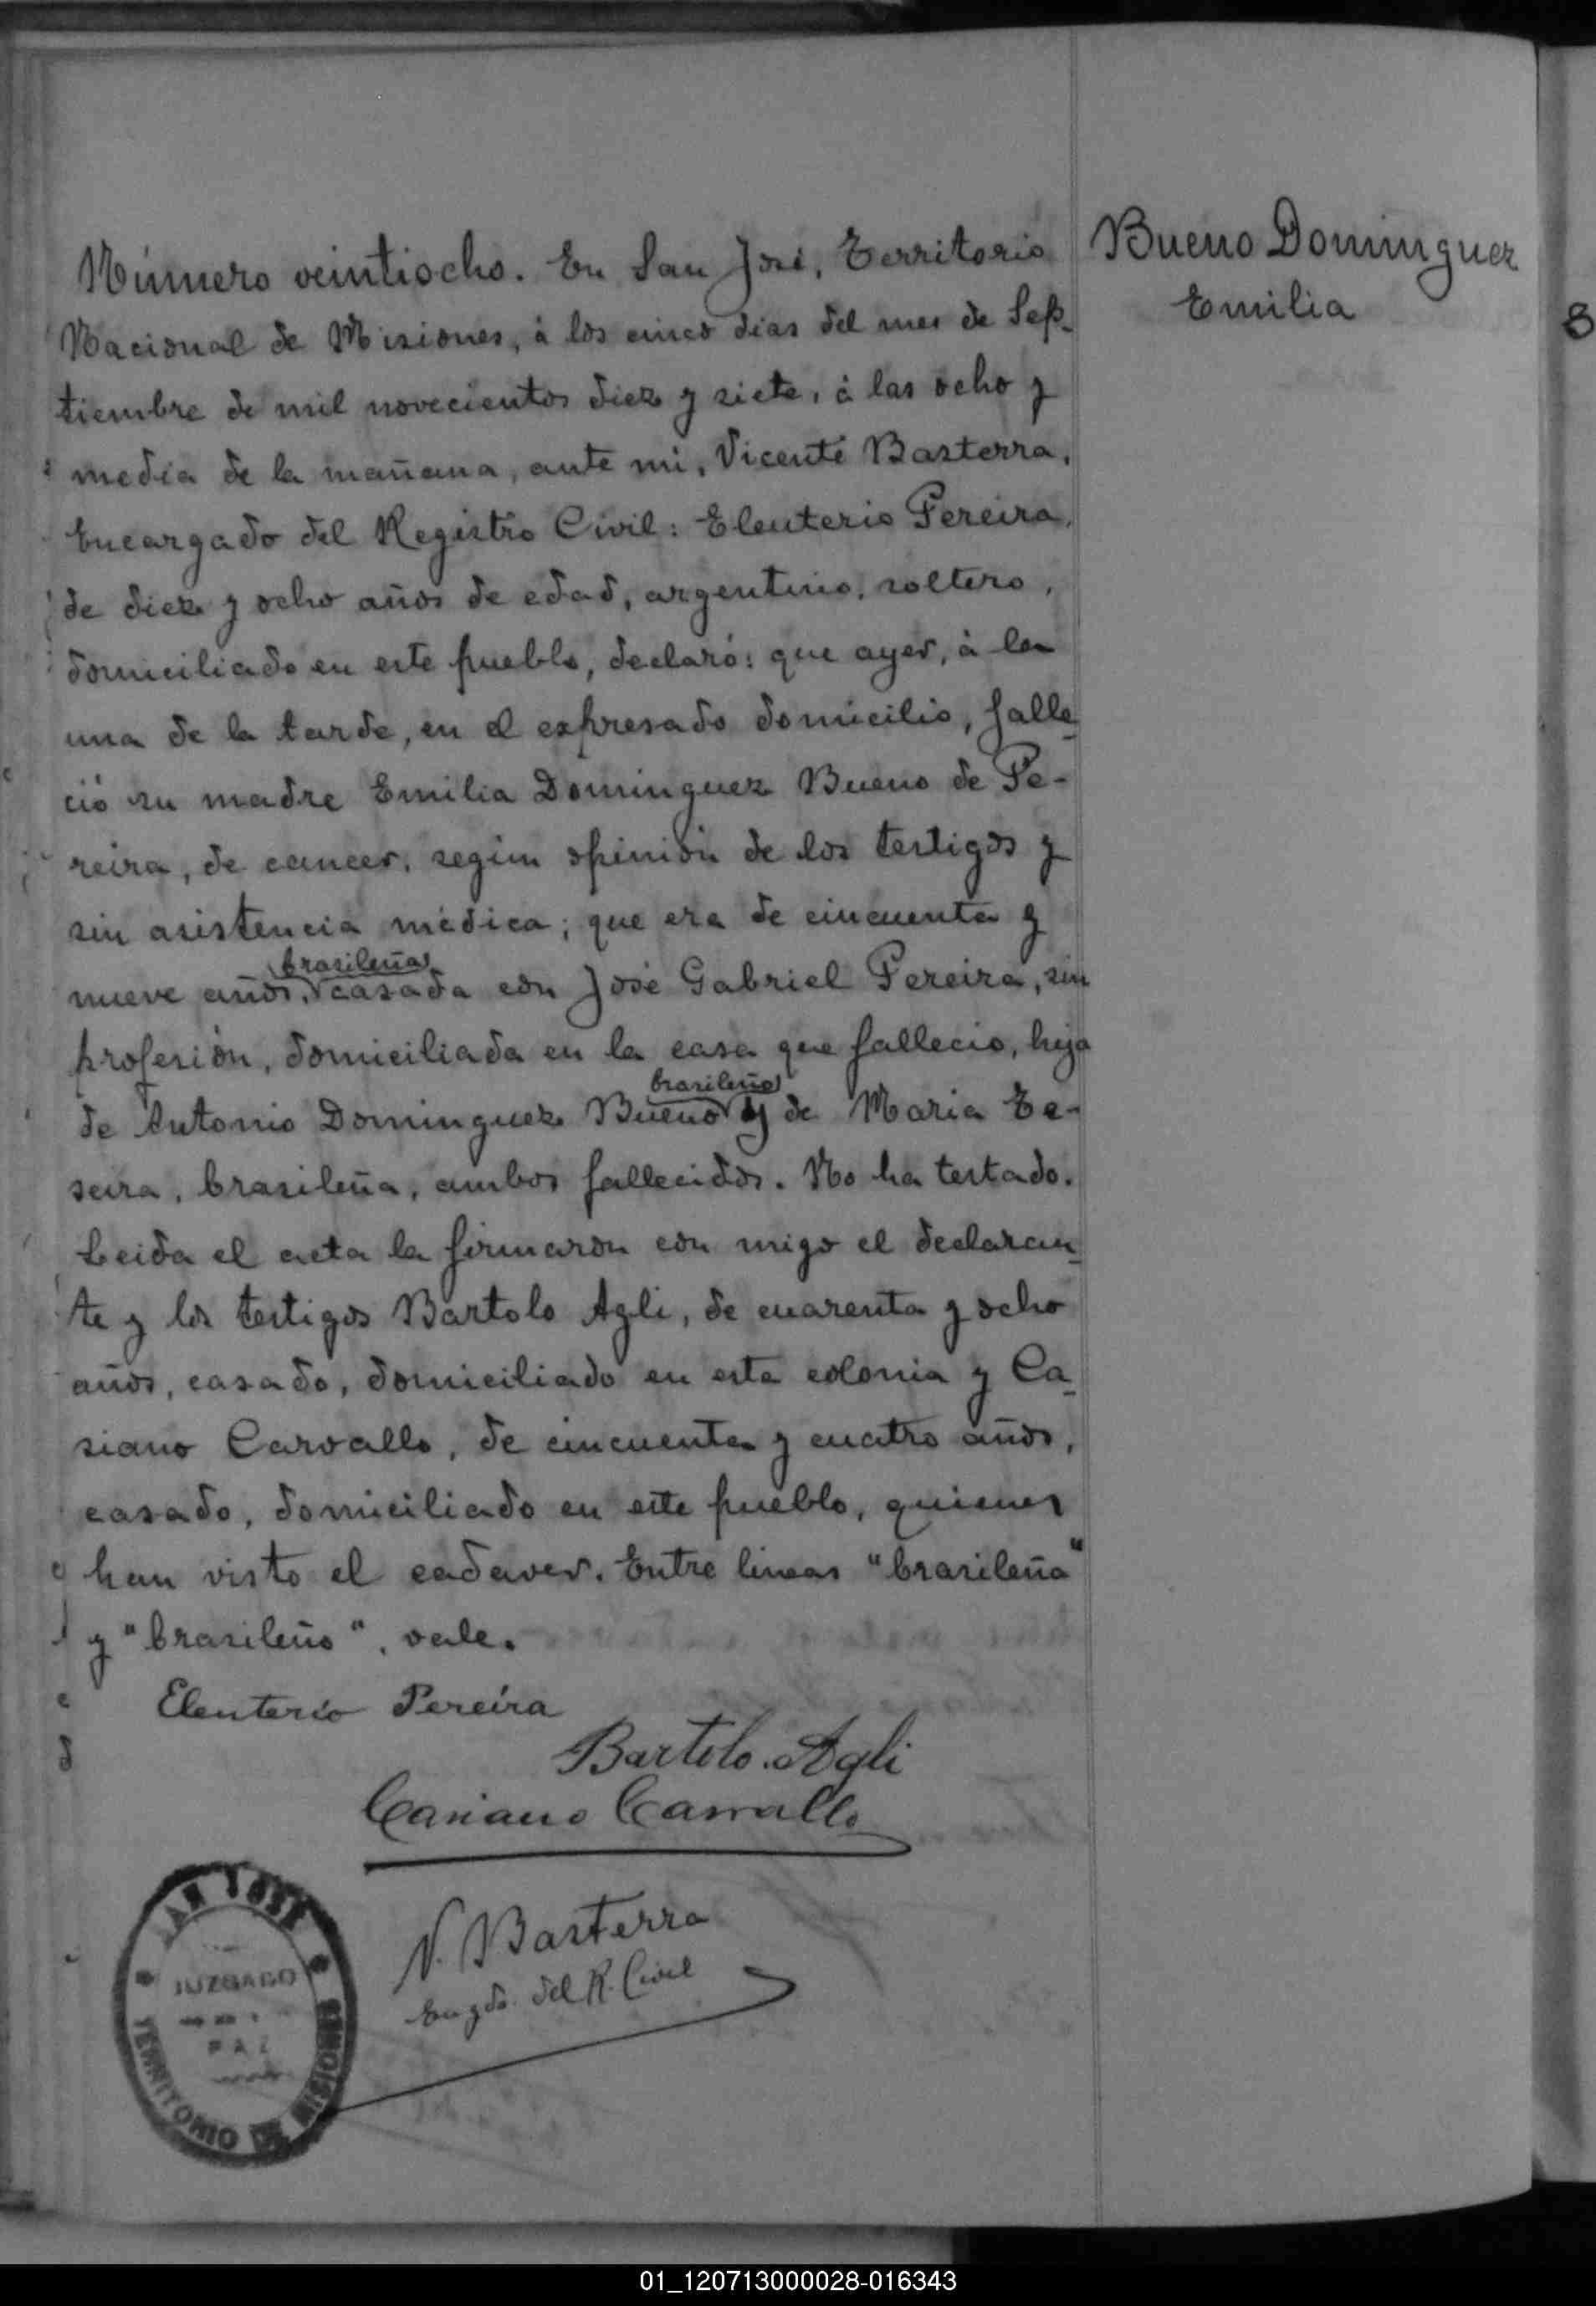 Bueno Dominguez
Emilia
Número veintiocho. En San José, Territorio
Nacional de Misiones, á los cinco dias del mes de Sep-
tiembre de mil novecientos diez y siete, á las ocho y
media de la mañana, ante mi, Vicente Basterra,
Encargado del Registro Civil: Eleuterio Pereira,
de diez y ocho años de edad, argentino, soltero,
domiciliado en este pueblo, declaró: que ayer, á la
una de la tarde, en el expresado domicilio, falle-
ció su madre Emilia Dominguez Bueno de Pe-
reira, de cancer, segun opinión de los testigos y
sin asistencia médica; que era de cincuenta y
brasileña
nueve años, casada con José Gabriel Pereira, sin
profesión, domiciliada en la casa que fallecio, hija
brasileño
de Antonio Dominguez Bueno y de Maria Te-
seira, brasileña, ambos fallecidos. No ha testado.
Leida el acta la firmaron con migo el declaran-
te y los testigos Bartolo Agli, de cuarenta y ocho
años, casado, domiciliado en esta colonia y Ca-
siano Carvallo, de cincuenta y cuatro años,
casado, domiciliado en este pueblo, quienes
han visto el cadaver. Entre lineas "brasileña"
y "brasileño", vale.
Eleuterio Pereira
Bartolo Agli
Casiano Carvallo
V. Basterra
Engdo. del R. Civil
SAN JOSE
JUZGADO
DE
PAZ
TERRITORIO DE MISIONES
01_120713000028-016343